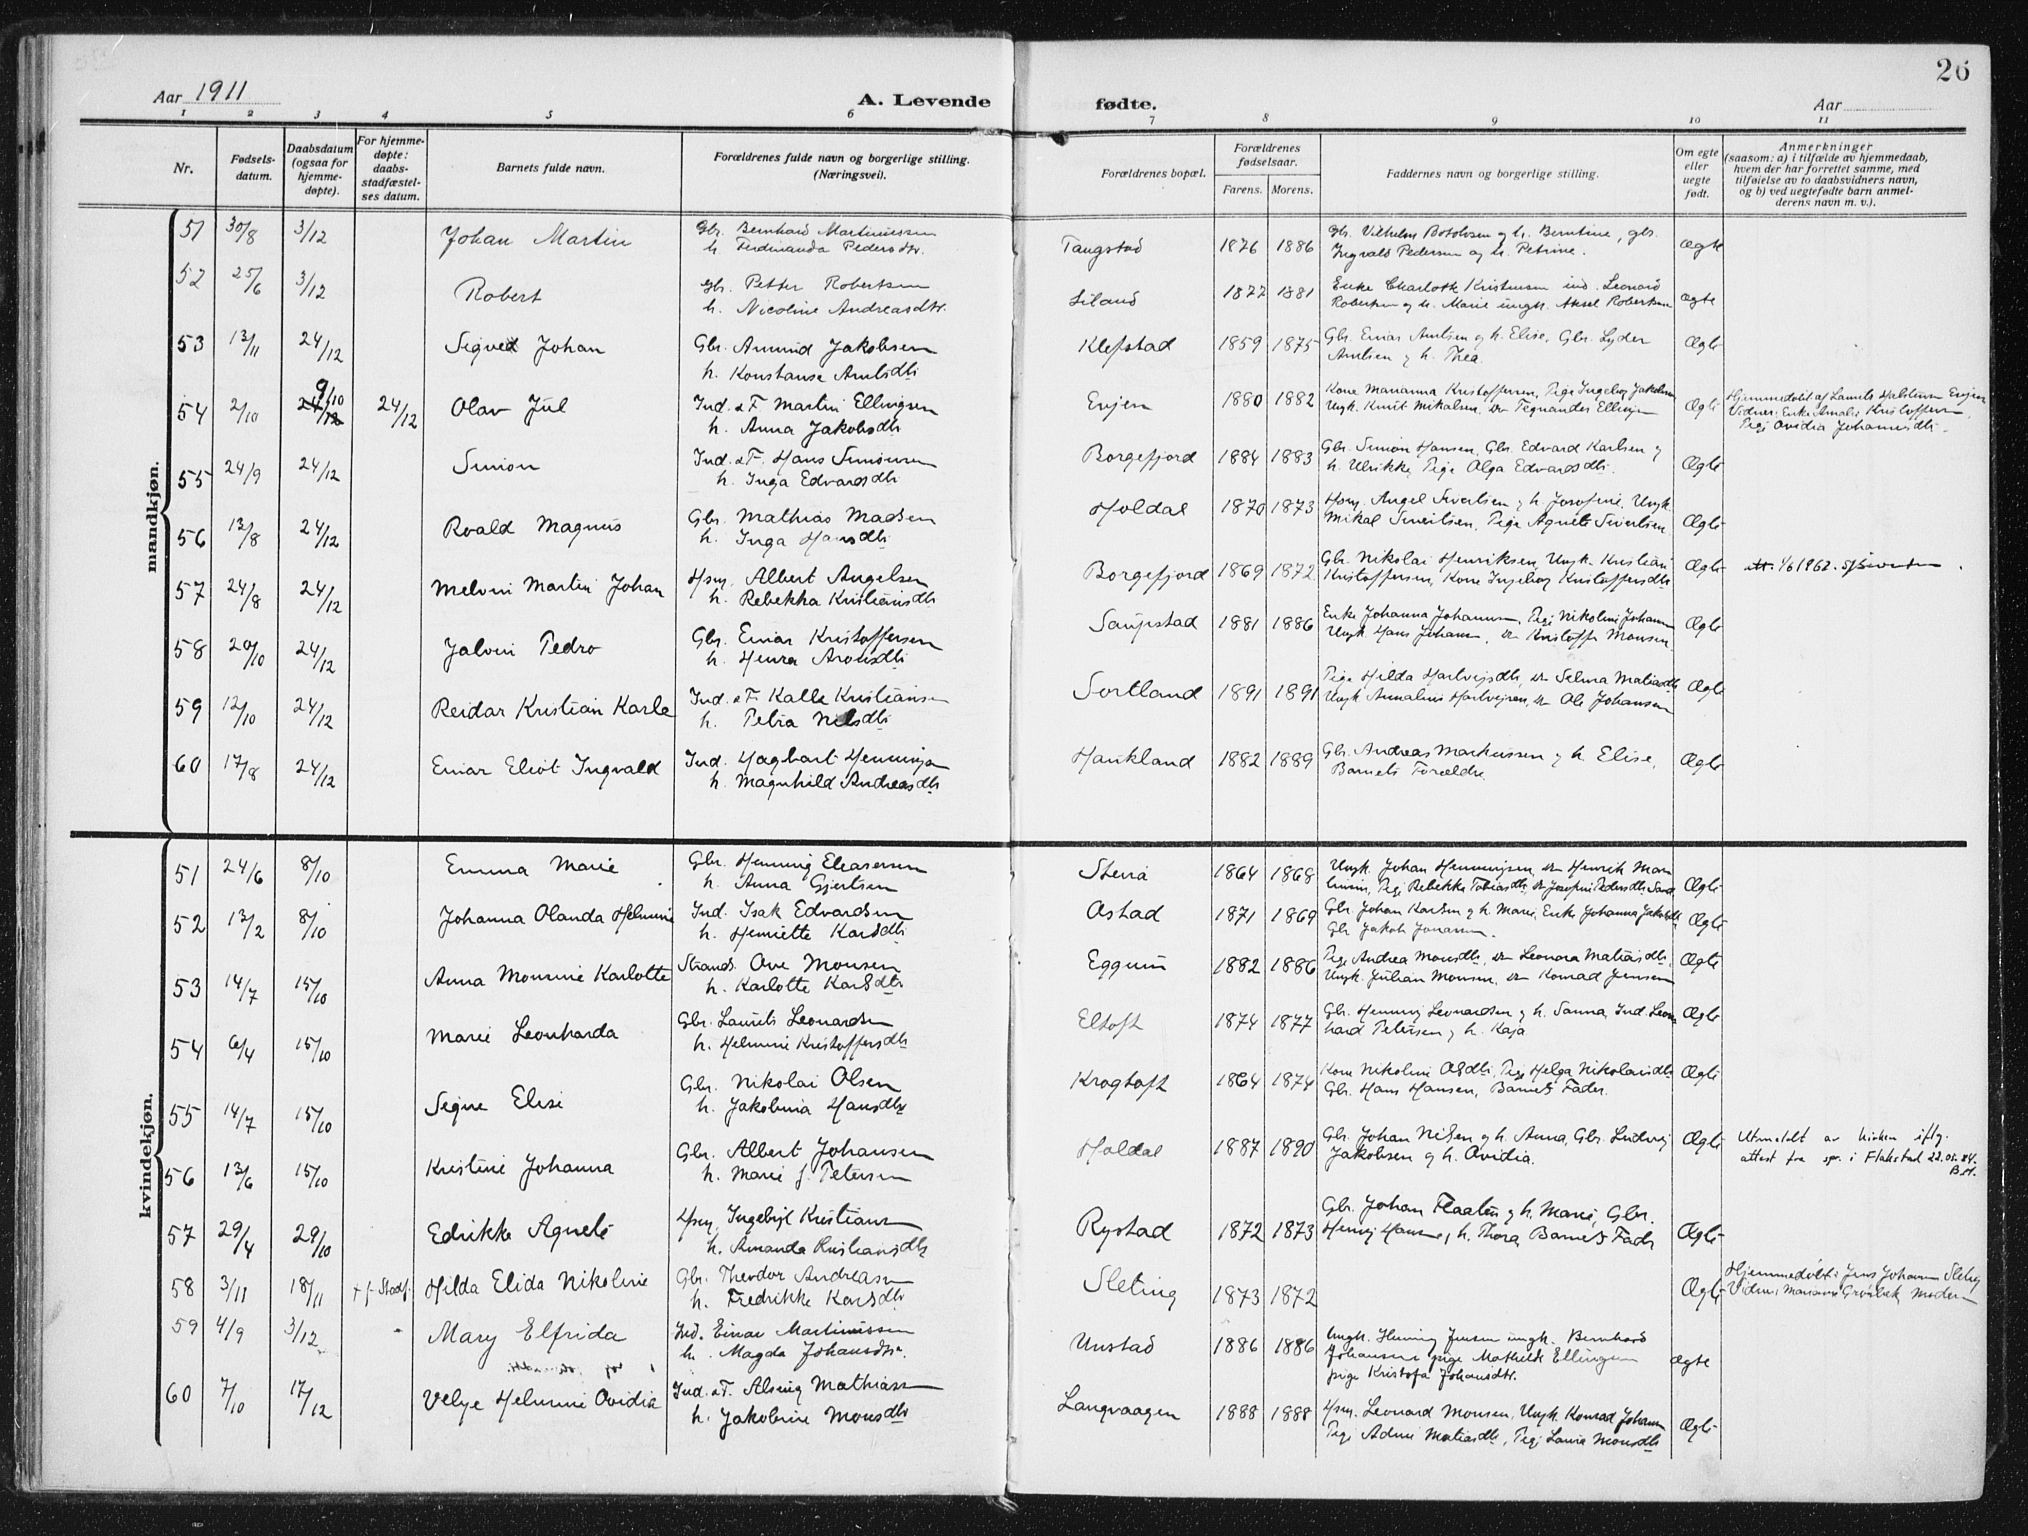 26
Aar 1911
A. Levende
fødte.
Aar
1 2 3 4 5 6 7 8 9 10 11
Nr.
Fødsels-
datum.
Daabsdatum
(ogsaa for
hjemme-
døpte).
For hjemme-
døpte:
daabs-
stadfæstel-
ses datum.
Barnets fulde navn.
Forældrenes fulde navn og borgerlige stilling.
(Næringsvei).
Forældrenes bopæl.
Forældrenes
fødselsaar.
Farens. Morens.
Faddernes navn og borgerlige stilling.
Om egte
eller
uegte
født.
Anmerkninger
(saasom: a) i tilfælde av hjemmedaab,
hvem der har forrettet samme, med
tilføielse av to daabsvidners navn,
og b) ved uegtefødte barn anmel-
derens navn m. v.).
mandkjøn.
51 30/8 3/12 Johan Martin Gbr. Bernhard Martinussen
h. Ferdinanda Pedersdtr.
Tangstad 1876 1886 Gbr. Vilhelm Botolvsen og h. Berntine, gbr.
Ingvald Pedersen og h. Petrine. Ægte
52 25/6 3/12 Robert gbr. Petter Robertsen
h. Nicoline Andreasdtr.
Liland 1877 1881 Enke Charlotte Kristensen ind. Leonard
Robertsen og h. Marie ungk. Aksel Robertsen ægte
53 13/11 24/12 Sigved Johan Gbr. Amund Jakobsen
h. Konstanse Arntsdtr
Klefstad 1859 1875 Gbr. Einar Arntsen og h. Elise, Gbr. Lyder
Arntsen og h. Thea. Ægte
54 2/10 9/10 24/12 24/12 Olav Jul Ind. & F. Martin Ellingsen
h. Anna Jakobsdtr
Evjen 1880 1882 Kone Marianna Kristoffersen, Pige Ingeborg Jakobsen
Ungk. Knut Mikalsen, Ægte
Hjemmedøbt af Laurits Halstensen Evjen
Vidner: Enke Amalie Kristoffersen,
Pige Ovidia Johannesdtr.
55 24/9 24/12 Simon Ind. & F. Hans Simonsen
h. Inga Edvardsdtr
Borgefjord 1884 1883 Gbr. Simon Hansen, Gbr. Edvard Karlsen og
h. Ulrikke, Pige Olga Edvardsdtr. Ægte
56 13/8 24/12 Roald Magnus Gbr. Mathias Madsen
h. Inga Hansdtr
Holdal 1870 1873 Hsm. Angel Sivertsen og h. Josefine, Ungk.
Mikal Sivertsen, Pige Agnete Sivertsen Ægte
57 24/8 24/12 Melvin Martin Johan Hsm. Albert Angelsen
h. Rebekka Kristiansdtr
Borgefjord 1869 1872 Gbr. Nikolai Henriksen, Ungk. Kristian
Kristoffersen, Kone Ingeborg Kristoffersdtr Ægte
58 20/10 24/12 Jalvin Pedro Gbr. Einar Kristoffersen
h. Henra Aronsdtr
Saupstad 1881 1886 Enke Johanna Johansen, Pige Nikoline Johansen
Ungk. Hans Johansen, Kristoffer Monsen Ægte
59 12/10 24/12 Reidar Kristian Karle Ind. & F. Kalle Kristiansen
h. Petra Nilsdtr
Sortland 1891 1891 Pige Hilda Hartvigsdtr, Selma Matiasdtr
Ungk Annalius Hartvigsen, Ole Johansen Ægte
60 17/8 24/12 Einar Eliot Ingvald Ind. Hagbart Henningsen
h. Magnhild Andreasdtr
Haukland 1882 1889 Gbr. Andreas Markussen og h. Elise,
Barnets Forældre. Ægte
kvindekjøn.
51 24/6 8/10 Emma Marie Gbr. Henning Eleasersen
h. Anna Gjertsen
Stenra 1864 1868 Ungk. Johan Henningsen, Henrik
Pige Rebekka Tobiasdtr, Josefine Pedersdtr Ægte
52 13/2 8/10 Johanna Olanda Helmine Ind. Isak Edvardsen
h. Henriette Karlsdtr
Astad 1871 1869 Gbr. Johan Karlsen og h. Marie, Enke Johanna Jakobsdtr
Gbr Jakob Johansen. Ægte
53 14/7 15/10 Anna Monsine Karlotte Strands. Ove Monsen
h. Karlotte Karlsdtr
Eggum 1882 1886 Pige Andrea Monsdtr, Leonora Matiasdtr,
Ungk. Julian Monsen, Konrad Jensen Ægte
54 6/4 15/10 Marie Leonharda Gbr. Laurits Leonardsen
h. Helmine Kristoffersdtr
Eltoft 1874 1877 Gbr. Henning Leonardsen og h. Sanna, Ind. Leon
hard Petersen og h. Kaja Ægte
55 14/7 15/10 Signe Elise Gbr. Nikolai Olsen
h. Jakobina Hansdtr
Krogtoft 1864 1874 Kone Nikoline Olsdtr, Pige Helga Nikolaisdtr
Gbr. Hans Hansen, Barnets Fader. Ægte
56 13/6 15/10 Kristine Johanna Gbr. Albert Johansen
h. Marie f. Petersen
Holdal 1887 1890 Gbr. Johan Nilsen og h. Anna, Gbr. Ludvig
Jakobsen og h. Ovidia. Ægte
Utmeldt av kirken iflg.
attest fra spr. i Flakstad 22.01.84.
B.H.
57 29/4 29/10 Edrikke Agnete Hsm. Ingebrigt Kristiansen
h. Amanda Kristiansdtr
Rystad 1872 1873 Gbr. Johan Flaaten og h. Marie, Gbr.
Henrij Hansen, h. Thora, Barnets Fader Ægte
58 3/11 18/11 Hilda Elida Nikoline Gbr. Theodor Andreasen
h. Fredrikke Karlsdtr
Sleting 1873 1872 Ægte
Hjemmedøbt: Jens Johansen Sleting
Vidner: Marianne Grønbek, Moderen
59 4/9 3/12 Mary Elfrida Ind. Einar Martinussen
h. Magda Johansdtr.
Unstad 1886 1886 Ungk. Henning Jensen ungk. Bernhard
Johansen pige Mathilde Ellingsen
pige Kristofa Johansdtr. ægte
60 7/10 17/12 Velye Helmine Ovidia Ind. & F. Alsing Mathiasen
h. Jakobine Monsdtr
Langvaagen 1888 1888 Hsm. Leonard Monsen, Ungk. Konrad Johansen
Pige Adine Matiasdtr, Pige Laura Monsdtr Ægte